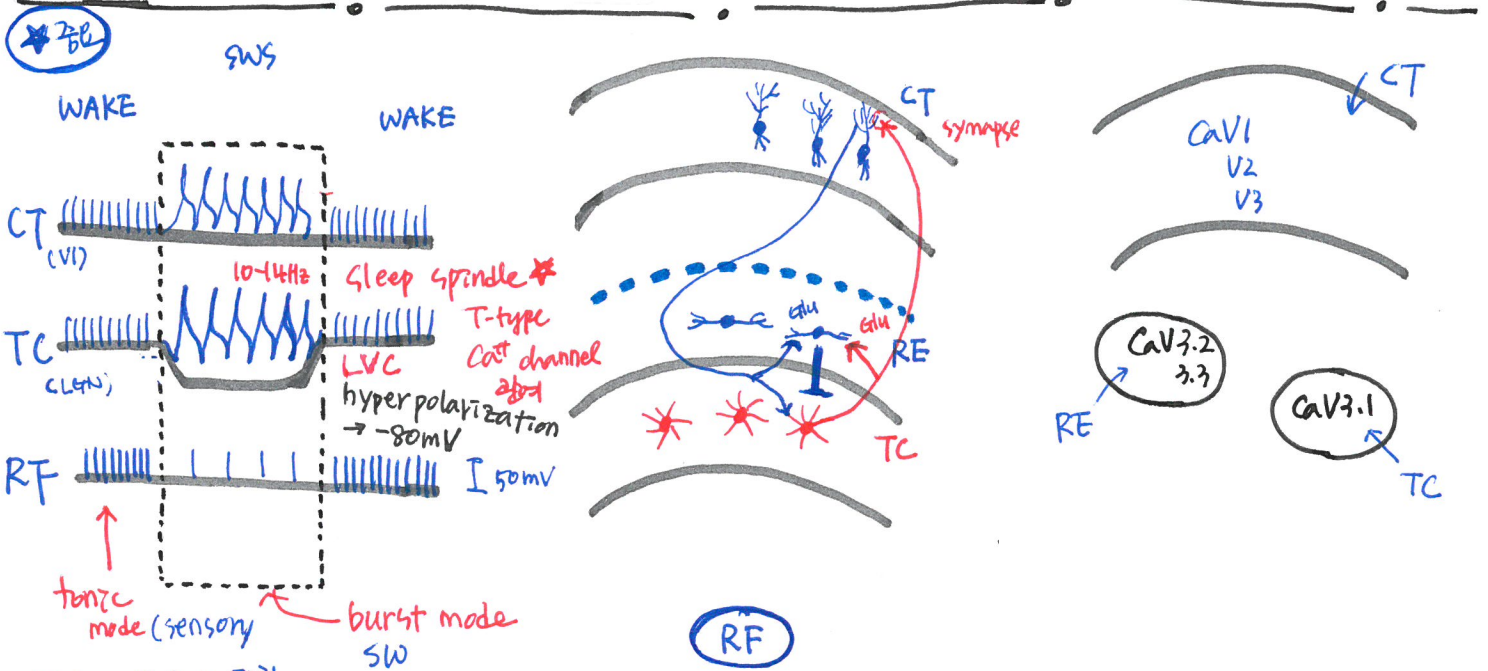 ★중요
SWS
WAKE
WAKE
CT
(V1)
10-14Hz
sleep spindle ★
TC
(LGN)
T-type
Ca++ channel
LVC
hyperpolarization
→ -80mV
RF
50mV
tonic
mode (sensory
burst mode
SW
CT
synapse
Glu
Glu
RE
TC
RF
CT
CaV1
V2
V3
CaV3.2
3.3
RE
CaV3.1
TC